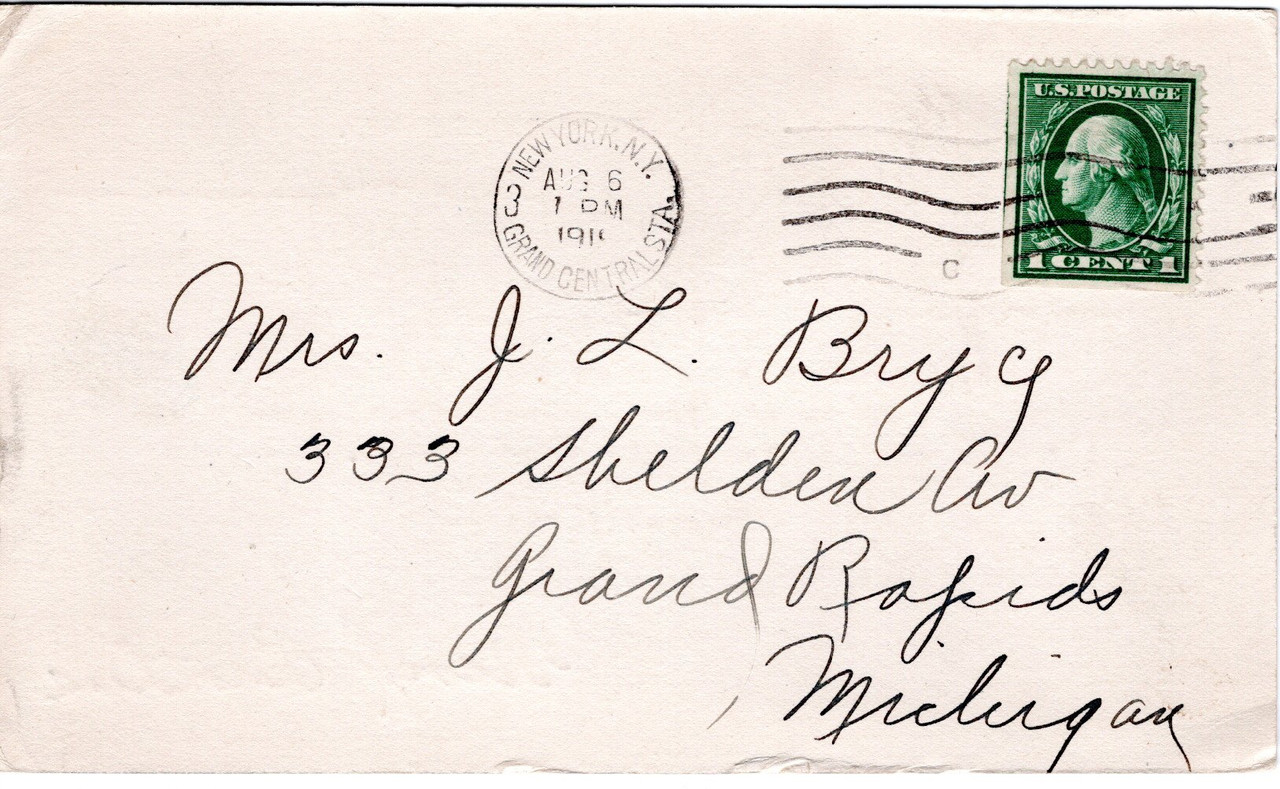 U.S. POSTAGE
1 CENT 1
NEW YORK, N.Y.
3
AUG 6
1 PM
GRAND CENTRAL STA.
C
Mrs. J. L. Bryy
333 Shelden Av
Grand Rapids
Michigan